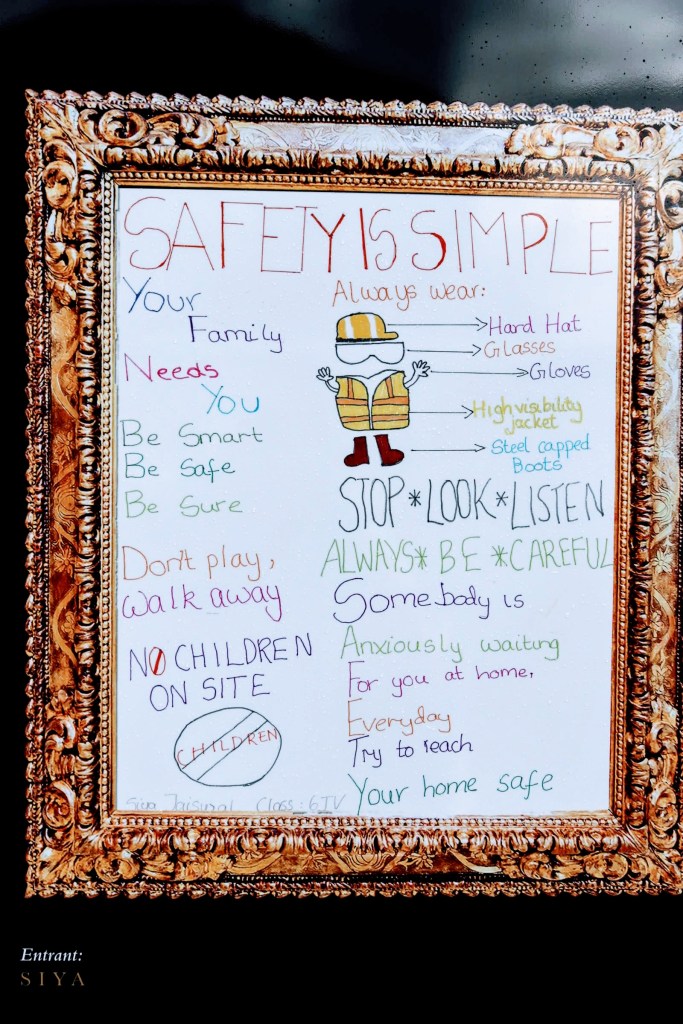 SAFETY IS SIMPLE
Your
Family
Needs
You
Be Smart
Be Safe
Be Sure
Don't play,
walk away
NO CHILDREN
ON SITE
CHILDREN
Siya Class: 6IV
Always wear:
Hard Hat
Glasses
Gloves
High visibility
jacket
Steel capped
Boots
STOP*LOOK*LISTEN
ALWAYS* BE *CAREFUL
Somebody is
Anxiously waiting
For you at home,
Everyday
Try to reach
Your home safe
Entrant:
SIYA